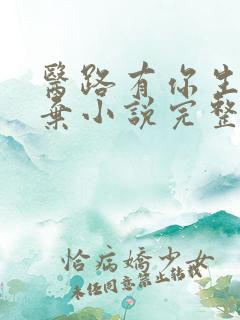 醫路有你生
棄小說完整
恰病嬌少女
未经同意禁止转载